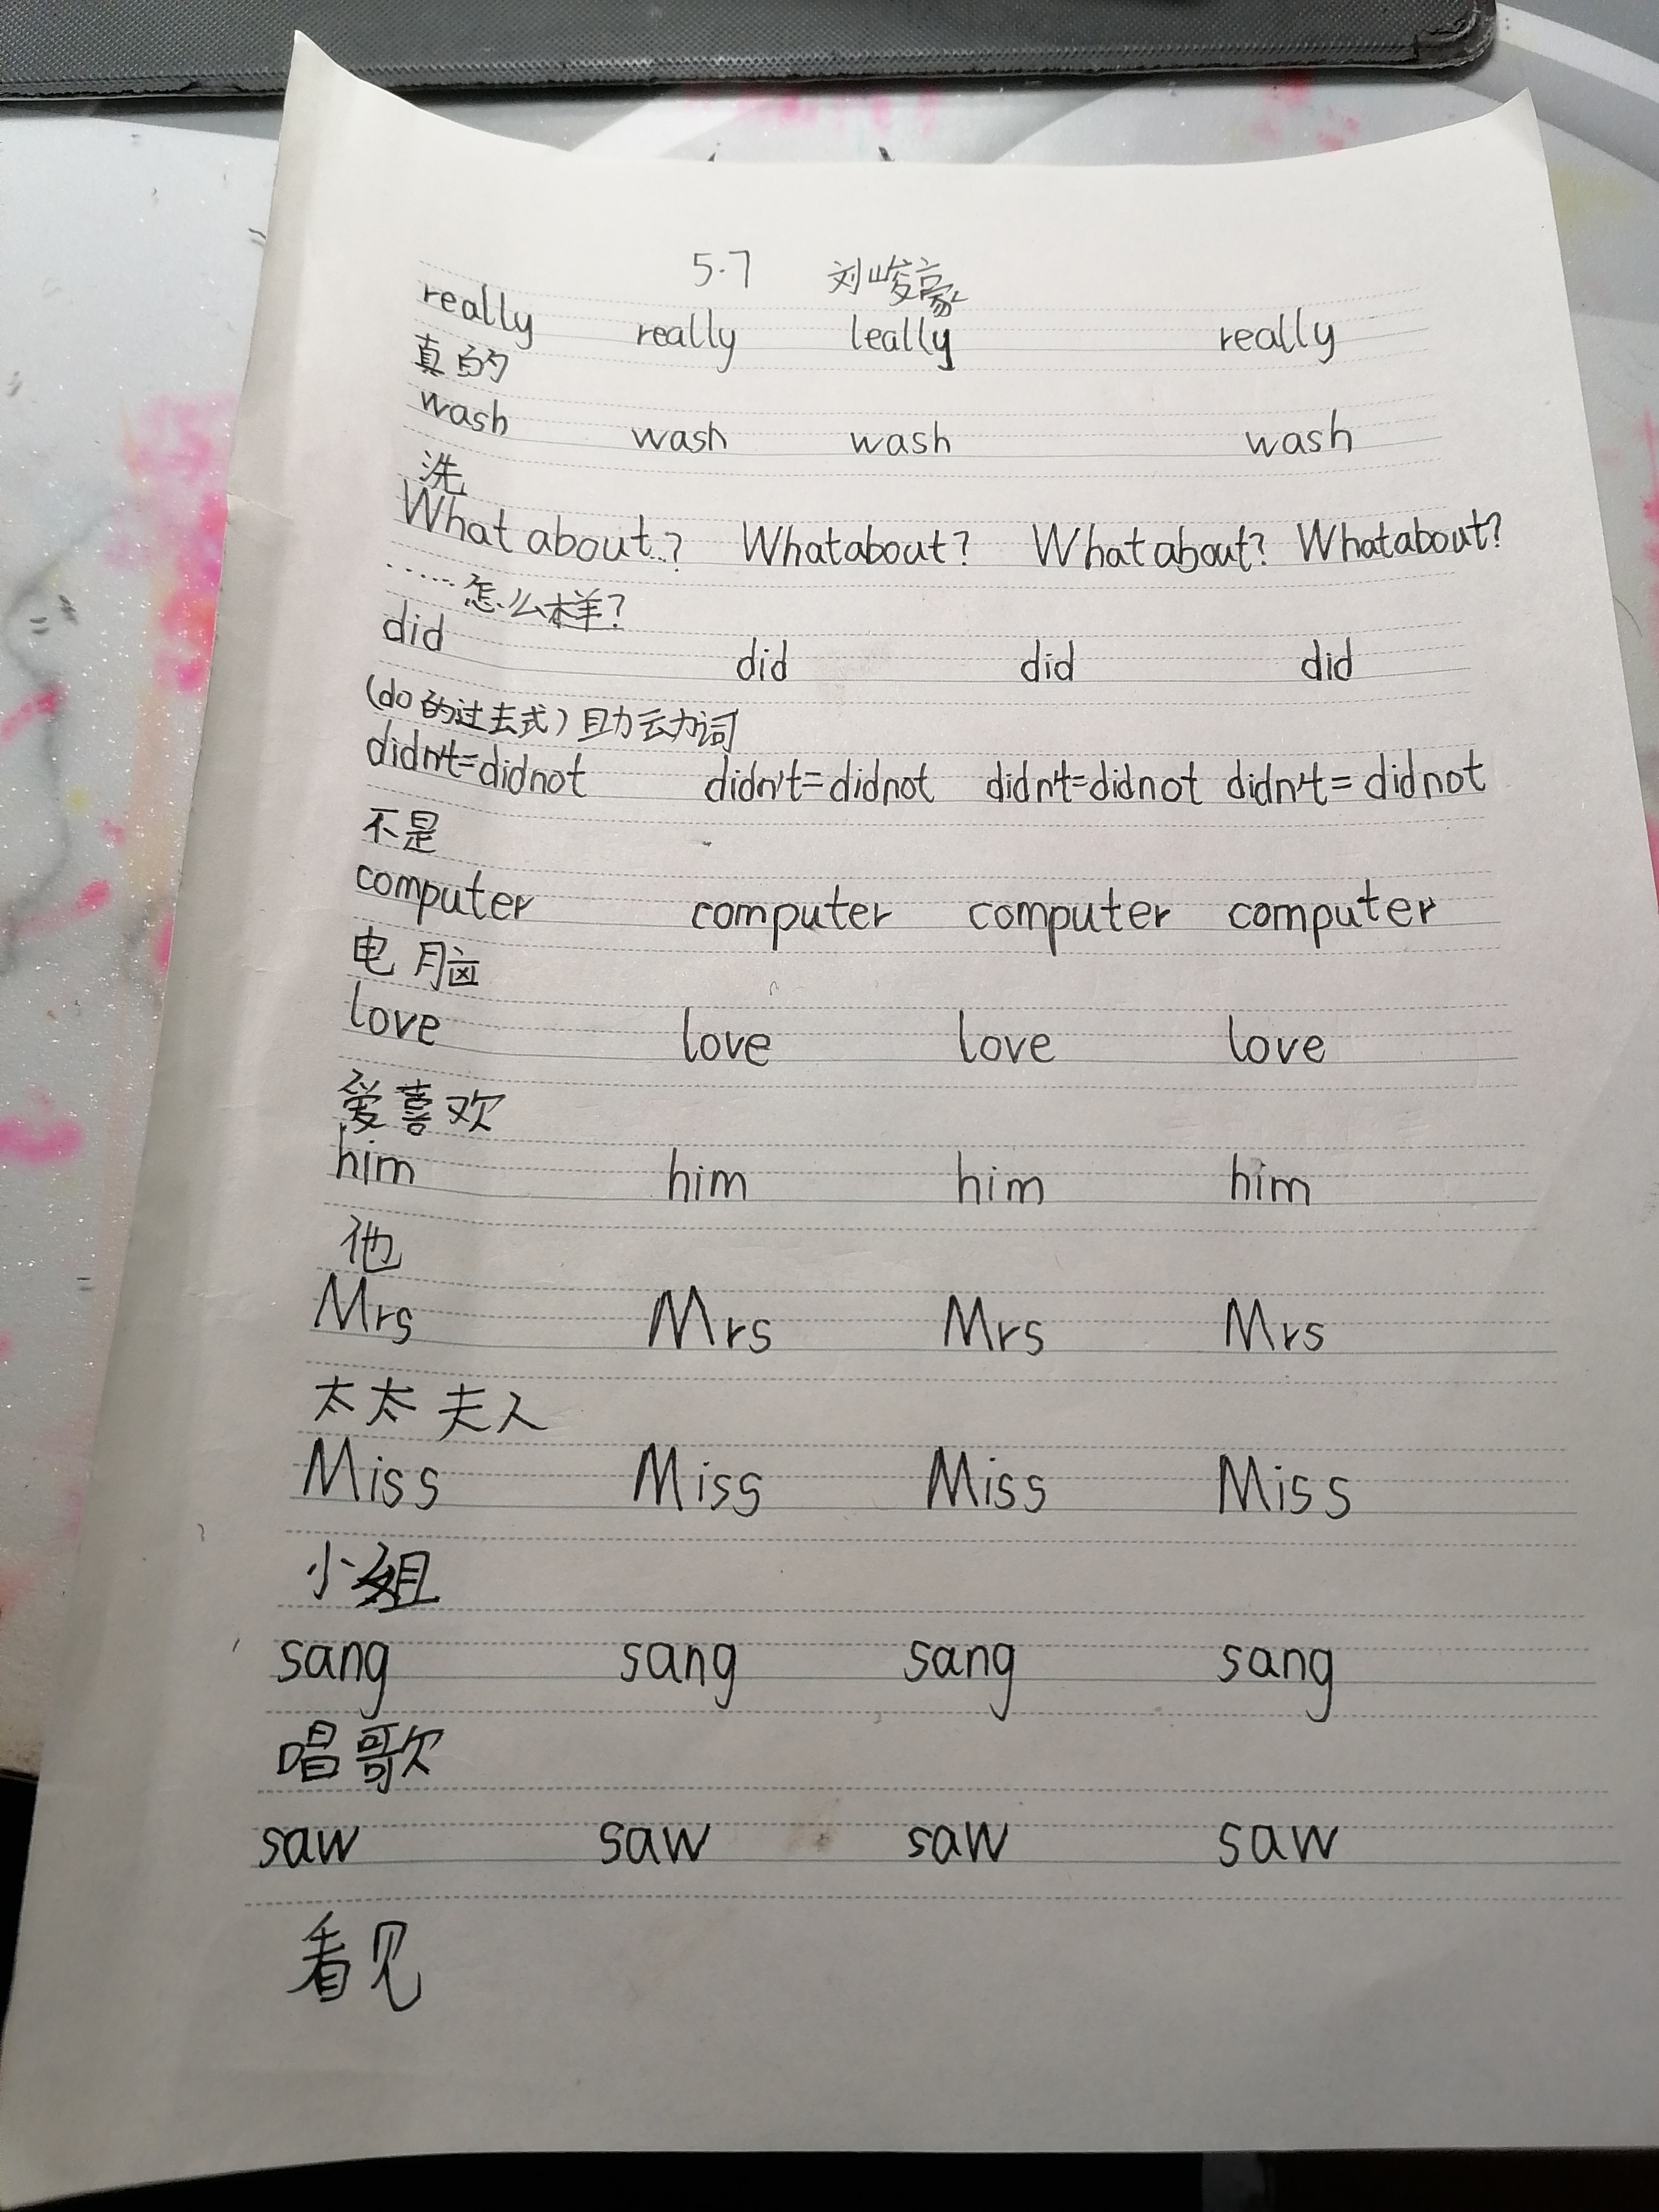 5.7 刘峻豪
really really leally really
真的
wash wash wash wash
洗
What about..? Whatabout? What about? Whatabout?
……怎么样?
did did did did
(do的过去式)助动词
didn't=didnot didn't=didnot didn't=didnot didn't=didnot
不是
computer computer computer computer
电脑
love love love love
爱喜欢
him him him him
他
Mrs Mrs Mrs Mrs
太太 夫人
Miss Miss Miss Miss
小姐
sang sang sang sang
唱歌
saw saw saw saw
看见